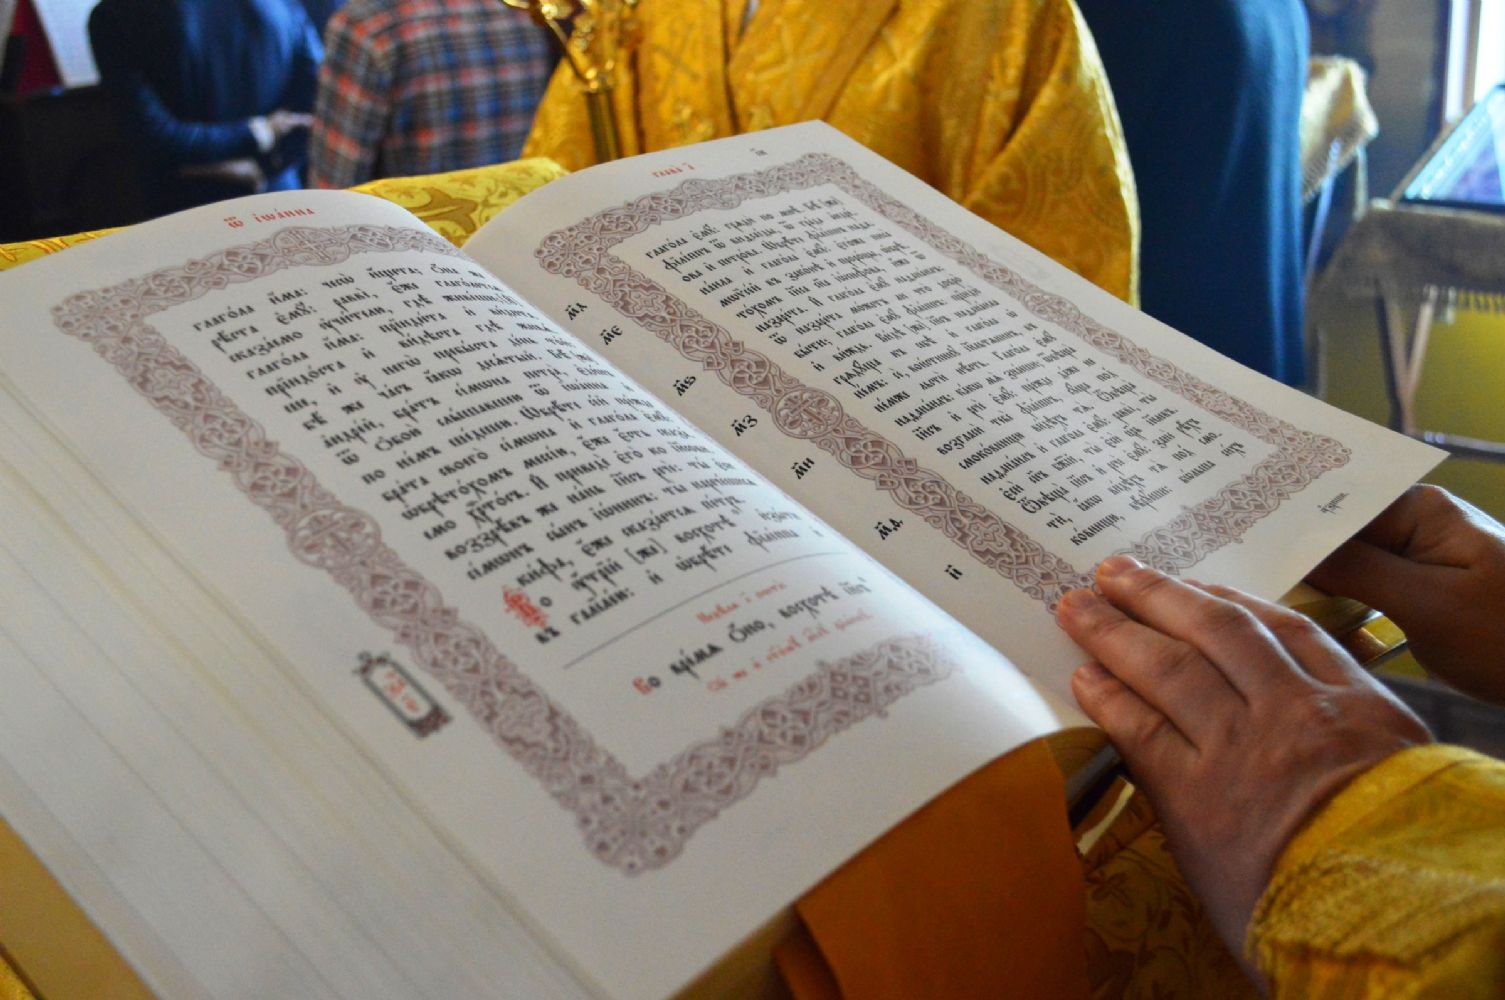 ѿ іѡа́нна
глаго́ла и҆̀ма: что̀ и҆́щета; ѻ҆́на же
реко́ста є҆мꙋ̀: равві̀, є҆́же глаго́летсѧ
сказа́емо ᲂу҆чи́телю, гдѣ̀ живе́ши;
глаго́ла и҆́ма: прїиди́та и҆ ви́дита.
прїидо́ста и҆ ви́дѣста гдѣ̀ живѧ́-
ше, и҆ ᲂу҆ негѡ̀ пребы́ста де́нь то́й.
бѣ́ же ча́съ ꙗ҆́кѡ десѧ́тый. Бѣ̀ [же]
а҆ндре́й, бра́тъ сі́мѡна петра̀, є҆ди́нъ
ѿ ѻ҆бою̀ слы́шавшею ѿ і҆ѡа́нна и҆
по не́мъ ше́дшею. Ѡ҆брѣ́те се́й пре́жде
бра́та своего̀ сі́мѡна и҆ глаго́ла є҆мꙋ̀:
ѡ҆брѣто́хомъ мессі́ю, є҆́же є҆́сть сказа́-
емо хрⷭ҇то́съ. И҆ приведѐ є҆го̀ ко і҆и҃сови.
воззрѣ́въ же на́нь і҆и҃съ речѐ: ты̀ є҆сѝ
сі́мѡнъ сы́нъ і҆ѡ́нинъ: ты̀ нарече́шисѧ
ки́фа, є҆́же сказа́етсѧ пе́тръ.
Во ᲂу҆́трїй [же] восхотѣ̀ и҆зы́ти
въ галїле́ю: и҆ ѡ҆брѣ́те фїлі́ппа и҆
Во вре́мѧ ѻ҆́но, восхотѣ̀ і҆и҃съ
м҃д
м҃є
м҃ѕ
м҃з
м҃и
м҃ѳ
н҃
глава̀ а҃
глаго́ла є҆мꙋ̀: грѧдѝ по мнѣ̀. Бѣ́ [же]
фїлі́ппъ ѿ виѳсаі́ды, ѿ гра́да а҆ндре́-
ова и҆ петро́ва. Ѡ҆брѣ́те фїлі́ппъ наѳа-
на́ила и҆ глаго́ла є҆мꙋ̀: є҆гѡ́же писа̀
мѡѷсе́й въ зако́нѣ и҆ проро́цы, ѡ҆брѣ-
то́хомъ і҆и҃са сы́на і҆ѡ́сифова, и҆́же ѿ
назаре́та. И҆ глаго́ла є҆мꙋ̀ наѳана́илъ:
ѿ назаре́та мо́жетъ ли что̀ добро̀
бы́ти; глаго́ла є҆мꙋ̀ фїлі́ппъ: прїидѝ
и҆ ви́ждь. Ви́дѣ [же] і҆и҃съ наѳана́ила
грѧдꙋ́ща къ себѣ̀ и҆ глаго́ла ѡ҆
не́мъ: сѐ, вои́стиннꙋ і҆и҃лтѧнинъ, въ
не́мже льстѝ нѣ́сть. Глаго́ла є҆мꙋ̀
наѳана́илъ: ка́кѡ мѧ̀ зна́еши; ѿвѣща̀
і҆и҃съ и҆ речѐ є҆мꙋ̀: пре́жде да́же не
возгласѝ тебѐ фїлі́ппъ, сꙋ́ща под̾
смоко́вницею ви́дѣхъ тѧ̀. Ѿвѣща̀
наѳана́илъ и҆ глаго́ла є҆мꙋ̀: равві̀, ты̀
є҆сѝ сн҃ъ бж҃їй, ты̀ є҆сѝ цр҃ь і҆и҃левъ.
Ѿвѣща̀ і҆и҃съ и҆ речѐ є҆мꙋ̀: занѐ рѣ́хъ
тѝ, ꙗ҆́кѡ ви́дѣхъ тѧ̀ под̾ смо-
ко́вницею, вѣ́рꙋеши: бѡ́льша си́хъ
ᲂу҆́зриши.